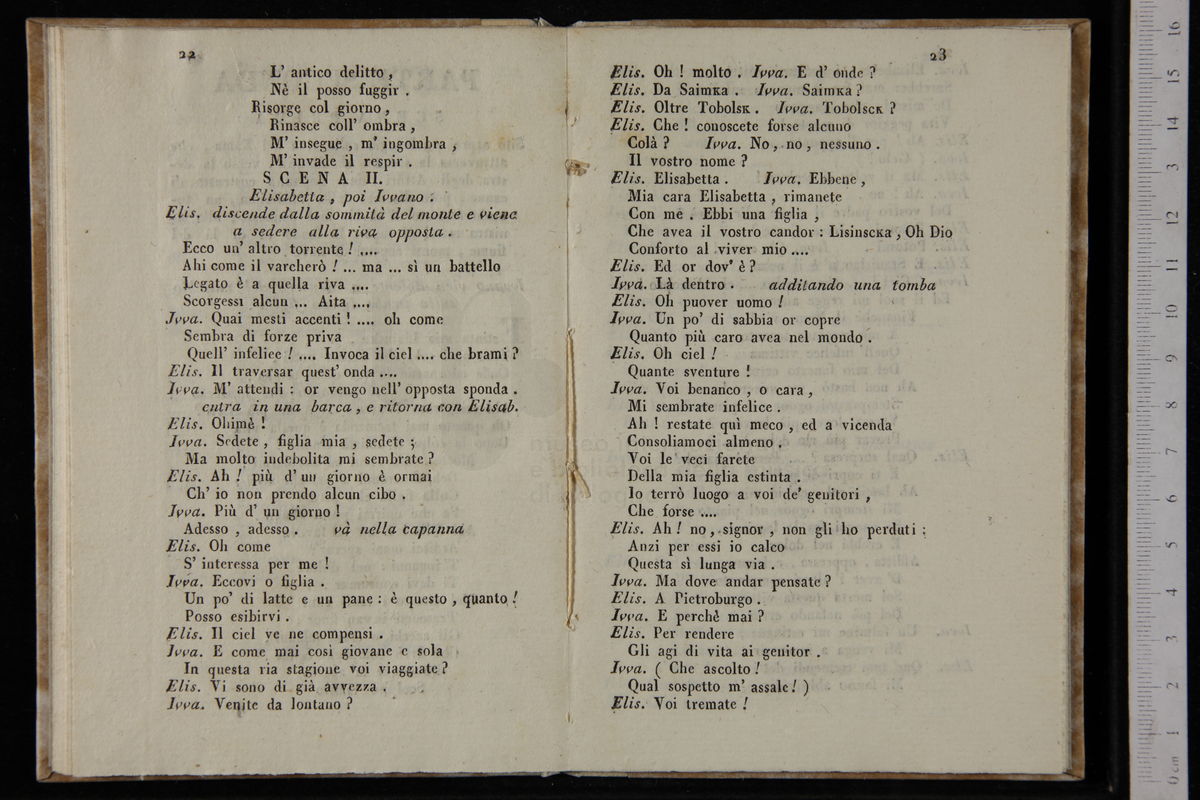 22
L' antico delitto ,
Nè il posso fuggir .
Risorge col giorno ,
Rinasce coll' ombra ,
M' insegue , m' ingombra ,
M' invade il respir .
S C E N A II.
Elisabetta , poi Ivvano .
Elis. discende dalla sommità del monte e viene
a sedere alla riva opposta .
Ecco un' altro torrente ! ....
Ahi come il varcherò ! ... ma ... sì un battello
Legato è a quella riva ....
Scorgessi alcun ... Aita ....
Ivva. Quai mesti accenti ! .... oh come
Sembra di forze priva
Quell' infelice ! .... Invoca il ciel .... che brami ?
Elis. Il traversar quest' onda ....
Ivva. M' attendi : or vengo nell' opposta sponda .
entra in una barca , e ritorna con Elisab.
Elis. Ohimè !
Ivva. Sedete , figlia mia , sedete ;
Ma molto indebolita mi sembrate ?
Elis. Ah ! più d' un giorno è ormai
Ch' io non prendo alcun cibo .
Ivva. Più d' un giorno !
Adesso , adesso . và nella capanna
Elis. Oh come
S' interessa per me !
Ivva. Eccovi o figlia .
Un po' di latte e un pane : è questo , quanto !
Posso esibirvi .
Elis. Il ciel ve ne compensi .
Ivva. E come mai così giovane e sola
In questa ria stagione voi viaggiate ?
Elis. Vi sono di già avvezza .
Ivva. Venite da lontano ?
23
Elis. Oh ! molto . Ivva. E d' onde ?
Elis. Da Saimka . Ivva. Saimka ?
Elis. Oltre Tobolsk . Ivva. Tobolsck ?
Elis. Che ! conoscete forse alcuno
Colà ? Ivva. No , no , nessuno .
Il vostro nome ?
Elis. Elisabetta . Ivva. Ebbene ,
Mia cara Elisabetta , rimanete
Con me . Ebbi una figlia ,
Che avea il vostro candor : Lisinscka , Oh Dio
Conforto al viver mio ....
Elis. Ed or dov' è ?
Ivva. Là dentro . additando una tomba
Elis. Oh puover uomo !
Ivva. Un po' di sabbia or copre
Quanto più caro avea nel mondo .
Elis. Oh ciel !
Quante sventure !
Ivva. Voi benanco , o cara ,
Mi sembrate infelice .
Ah ! restate quì meco , ed a vicenda
Consoliamoci almeno .
Voi le veci farete
Della mia figlia estinta .
Io terrò luogo a voi de' genitori ,
Che forse ....
Elis. Ah ! no , signor , non gli ho perduti ;
Anzi per essi io calco
Questa sì lunga via .
Ivva. Ma dove andar pensate ?
Elis. A Pietroburgo .
Ivva. E perchè mai ?
Elis. Per rendere
Gli agi di vita ai genitor .
Ivva. ( Che ascolto !
Qual sospetto m' assale ! )
Elis. Voi tremate !
0 cm 1 2 3 4 5 6 7 8 9 10 11 12 13 14 15 16